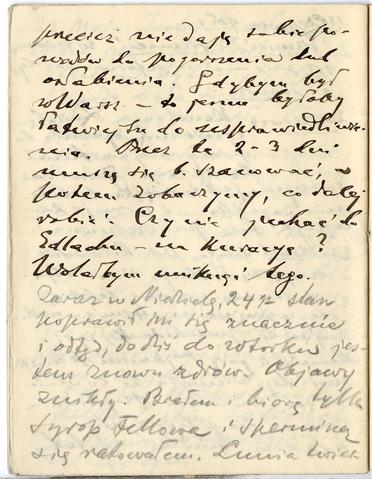 przecież nie dają sobie po-
wodów do pogorszenia lub
osłabienia. Gdybym był
w Warsz. – to jeszcze byłoby
łatwiejsze do usprawiedliwie-
nia. Przez te 2-3 dni
muszę się b. szanować, a
potem zobaczymy, co dalej
robić. Czy nie jechać do
Edlachu – na kurację?
Wolałbym uniknąć tego.
Zaraz w Niedzielę, 24 p. stan
poprawił mi się znacznie
i odtąd, do dziś do wtorku jes-
tem znowu zdrów. Objawy
znikły. Brałem i biorę tylko
Syrop Fellowa i sperminą
się ratowałem. Lunia twier-